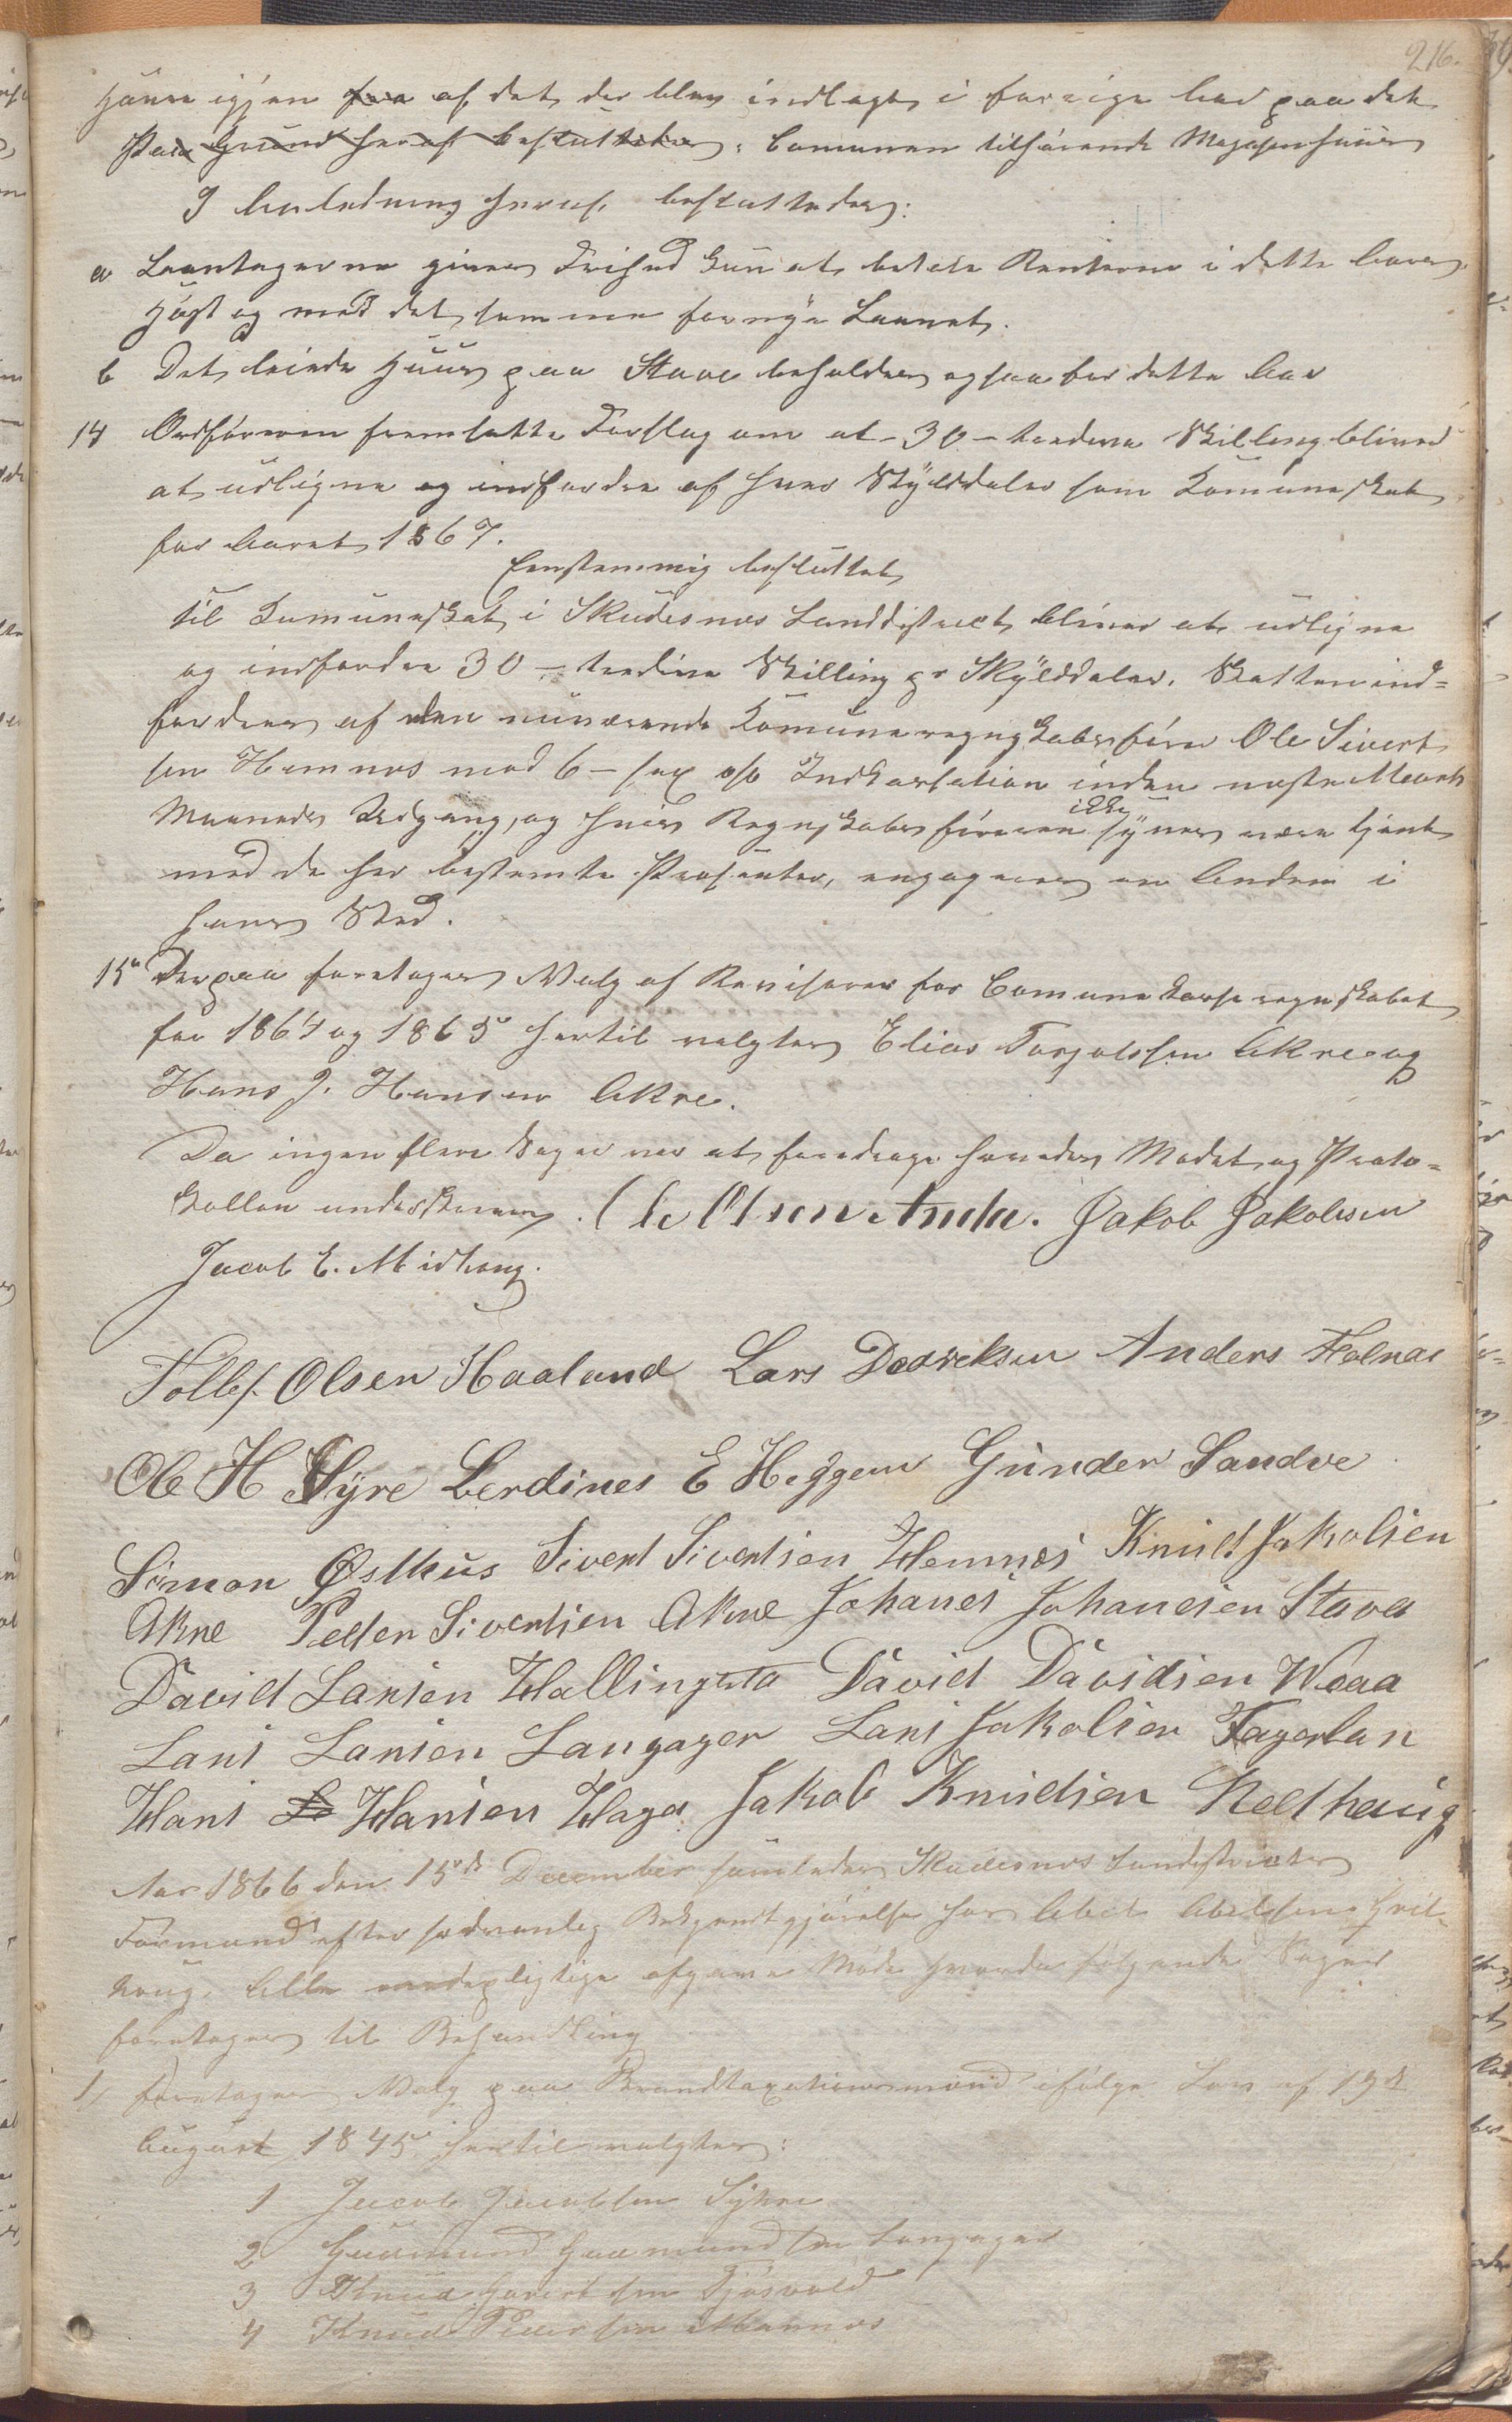 216.
igjen fra af det, der blev indlagt, i forrige Aar paa det
Paa Grund heraf besluttedes, Comunen tilhørende Magasinhuus
I Anledning heraf besluttedes:
a Laantagerne gives Frihed kun at betale Renterne i dette Aars
Høst og med det samme fornye Laanet.
b Det leiede Huus paa Stave beholdes ogsaa for dette Aar
14 Ordføreren fremsatte Forslag om at - 30 - tredeve Skilling bliver
at udligne og indfordre af hver Skylddaler som Komuneskat
for Aaret 1867.
Eenstemmig besluttet
til Komuneskat i Skudesnes Landdistrict bliver at udligne
og indfordre 30 - tredive Skilling pr Skylddaler. Skatten ind=
fordres af den nuværende Komuneregnskabsfører Ole Sivert
sen Hemnes mod 6 - sex o/o Indkassation inden næste Marts
Maaneds Udgang, og hvis Regnskabsføreren ikke synes være tjent
med de her bestemte Prosenter, engageres en Anden i
hans Sted.
15 Derpaa foretages Valg af Revisorer for Comunekasseregnskabet
for 1864 og 1865 hertil valgtes Elias Torgalssen Akre og
Hans J. Hansen Akre.
Da ingen flere Sager var at foredrage hævedes Mødet og Proto=
kollen underskreven. Ole Olsen Anda. Jakob Jakobsen
Jacob E. Midhaug.
Tollef Olsen Haaland Lars Dedreksen Anders Holnæs
Ole H Syre Berdines E Heggem Gunder Sandve
Simon Østhus Sivert Sivertsen Hemnes Knud Jakobsen
Akre Peder Sivertsen Akre Johanes Johanesen Stava
David Larsen Hallingsta David Davidsen Weaa
Lars Larsen Langager Lars Jakobsen Fagerlan
Hans Hansen Haga Jakob Knudsen Nedhaug
Aar 1866 den 15de December samledes Skudesnes Landdistricts
Formænd efter sædvanlig Bekjendtgjørelse hos Abel Abelsen
Alle mødepligtige afgave Møde hvorda følgende Sager
foretages til Behandling
1/ foretages Valg paa Brandtaxationsmænd ifølge Lov af 19de
August 1845 hertil valgtes:
1 Jacob Jacobsen Syhre
2 Guumund Guumundsen Langager
3 Knud Govertsen Tjøsvold
4 Knud Pedersen Mannes